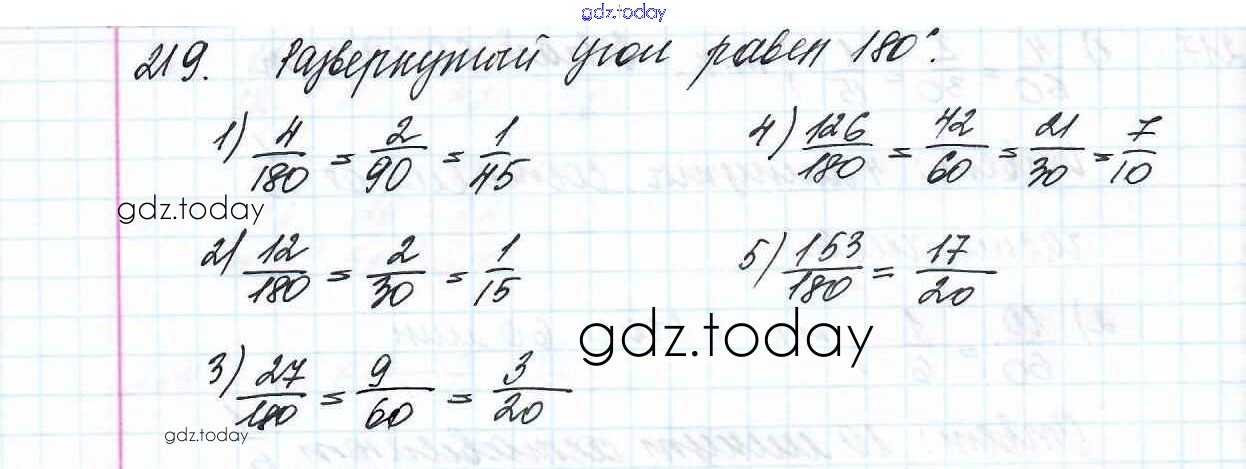 gdz.today
219. Развернутый угол равен 180°.
1) 4/180 = 2/90 = 1/45
4) 126/180 = 42/60 = 21/30 = 7/10
gdz.today
2) 12/180 = 2/30 = 1/15
5) 153/180 = 17/20
gdz.today
3) 27/180 = 9/60 = 3/20
gdz.today